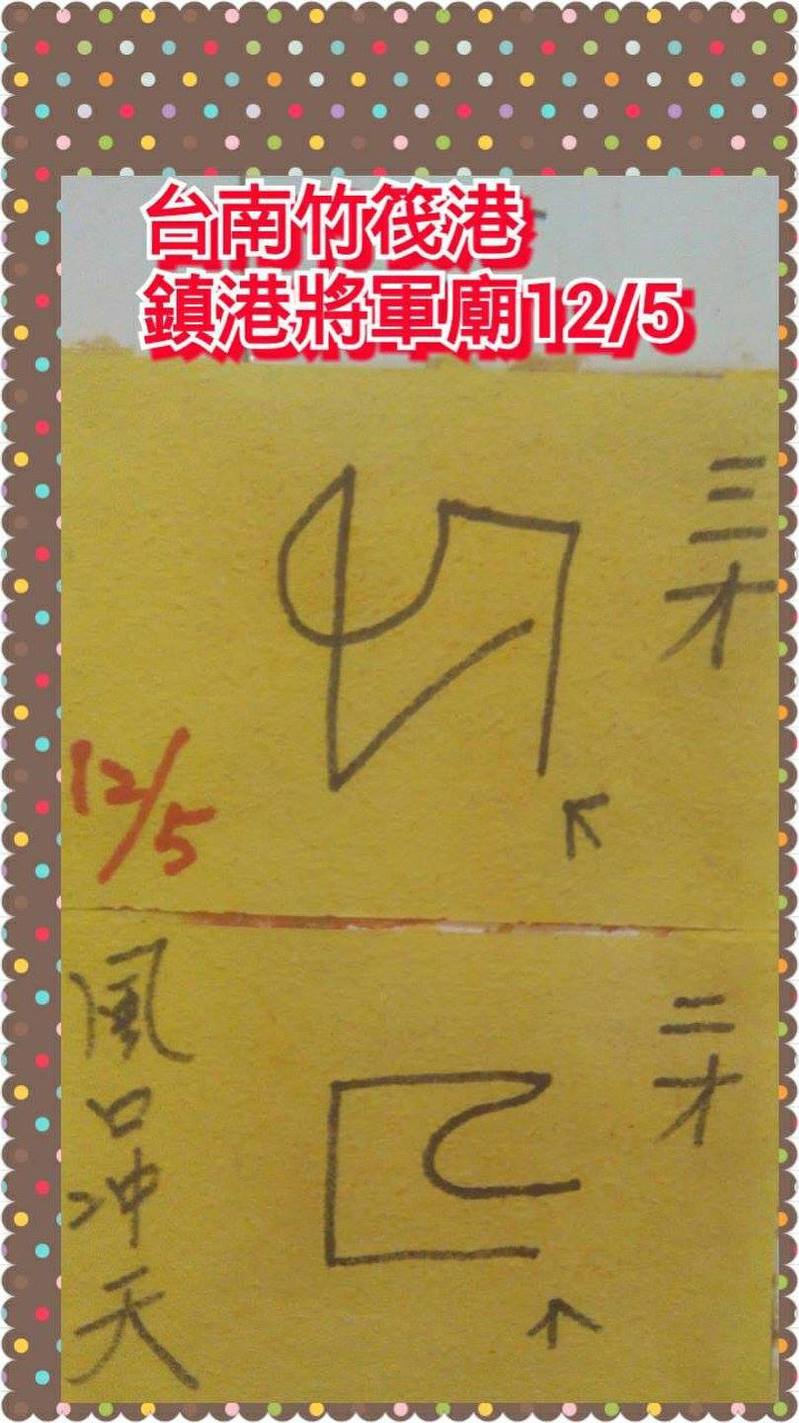 台南竹筏港
鎮港將軍廟12/5
三才
12/5
二才
風口冲天